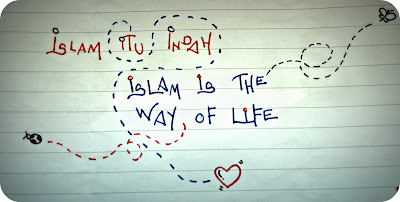 ISLAM ITU INDAH
ISLAM IS THE
WAY OF LIFE